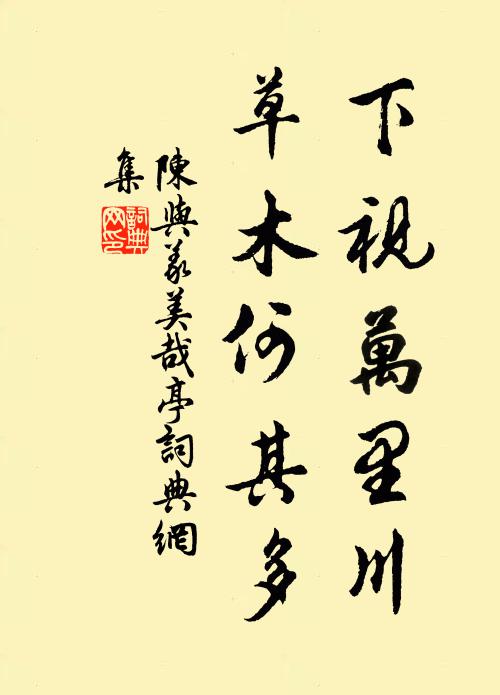 下視萬里川
草木何其多
陳與義美哉亭詞典網
集
詞典
网印